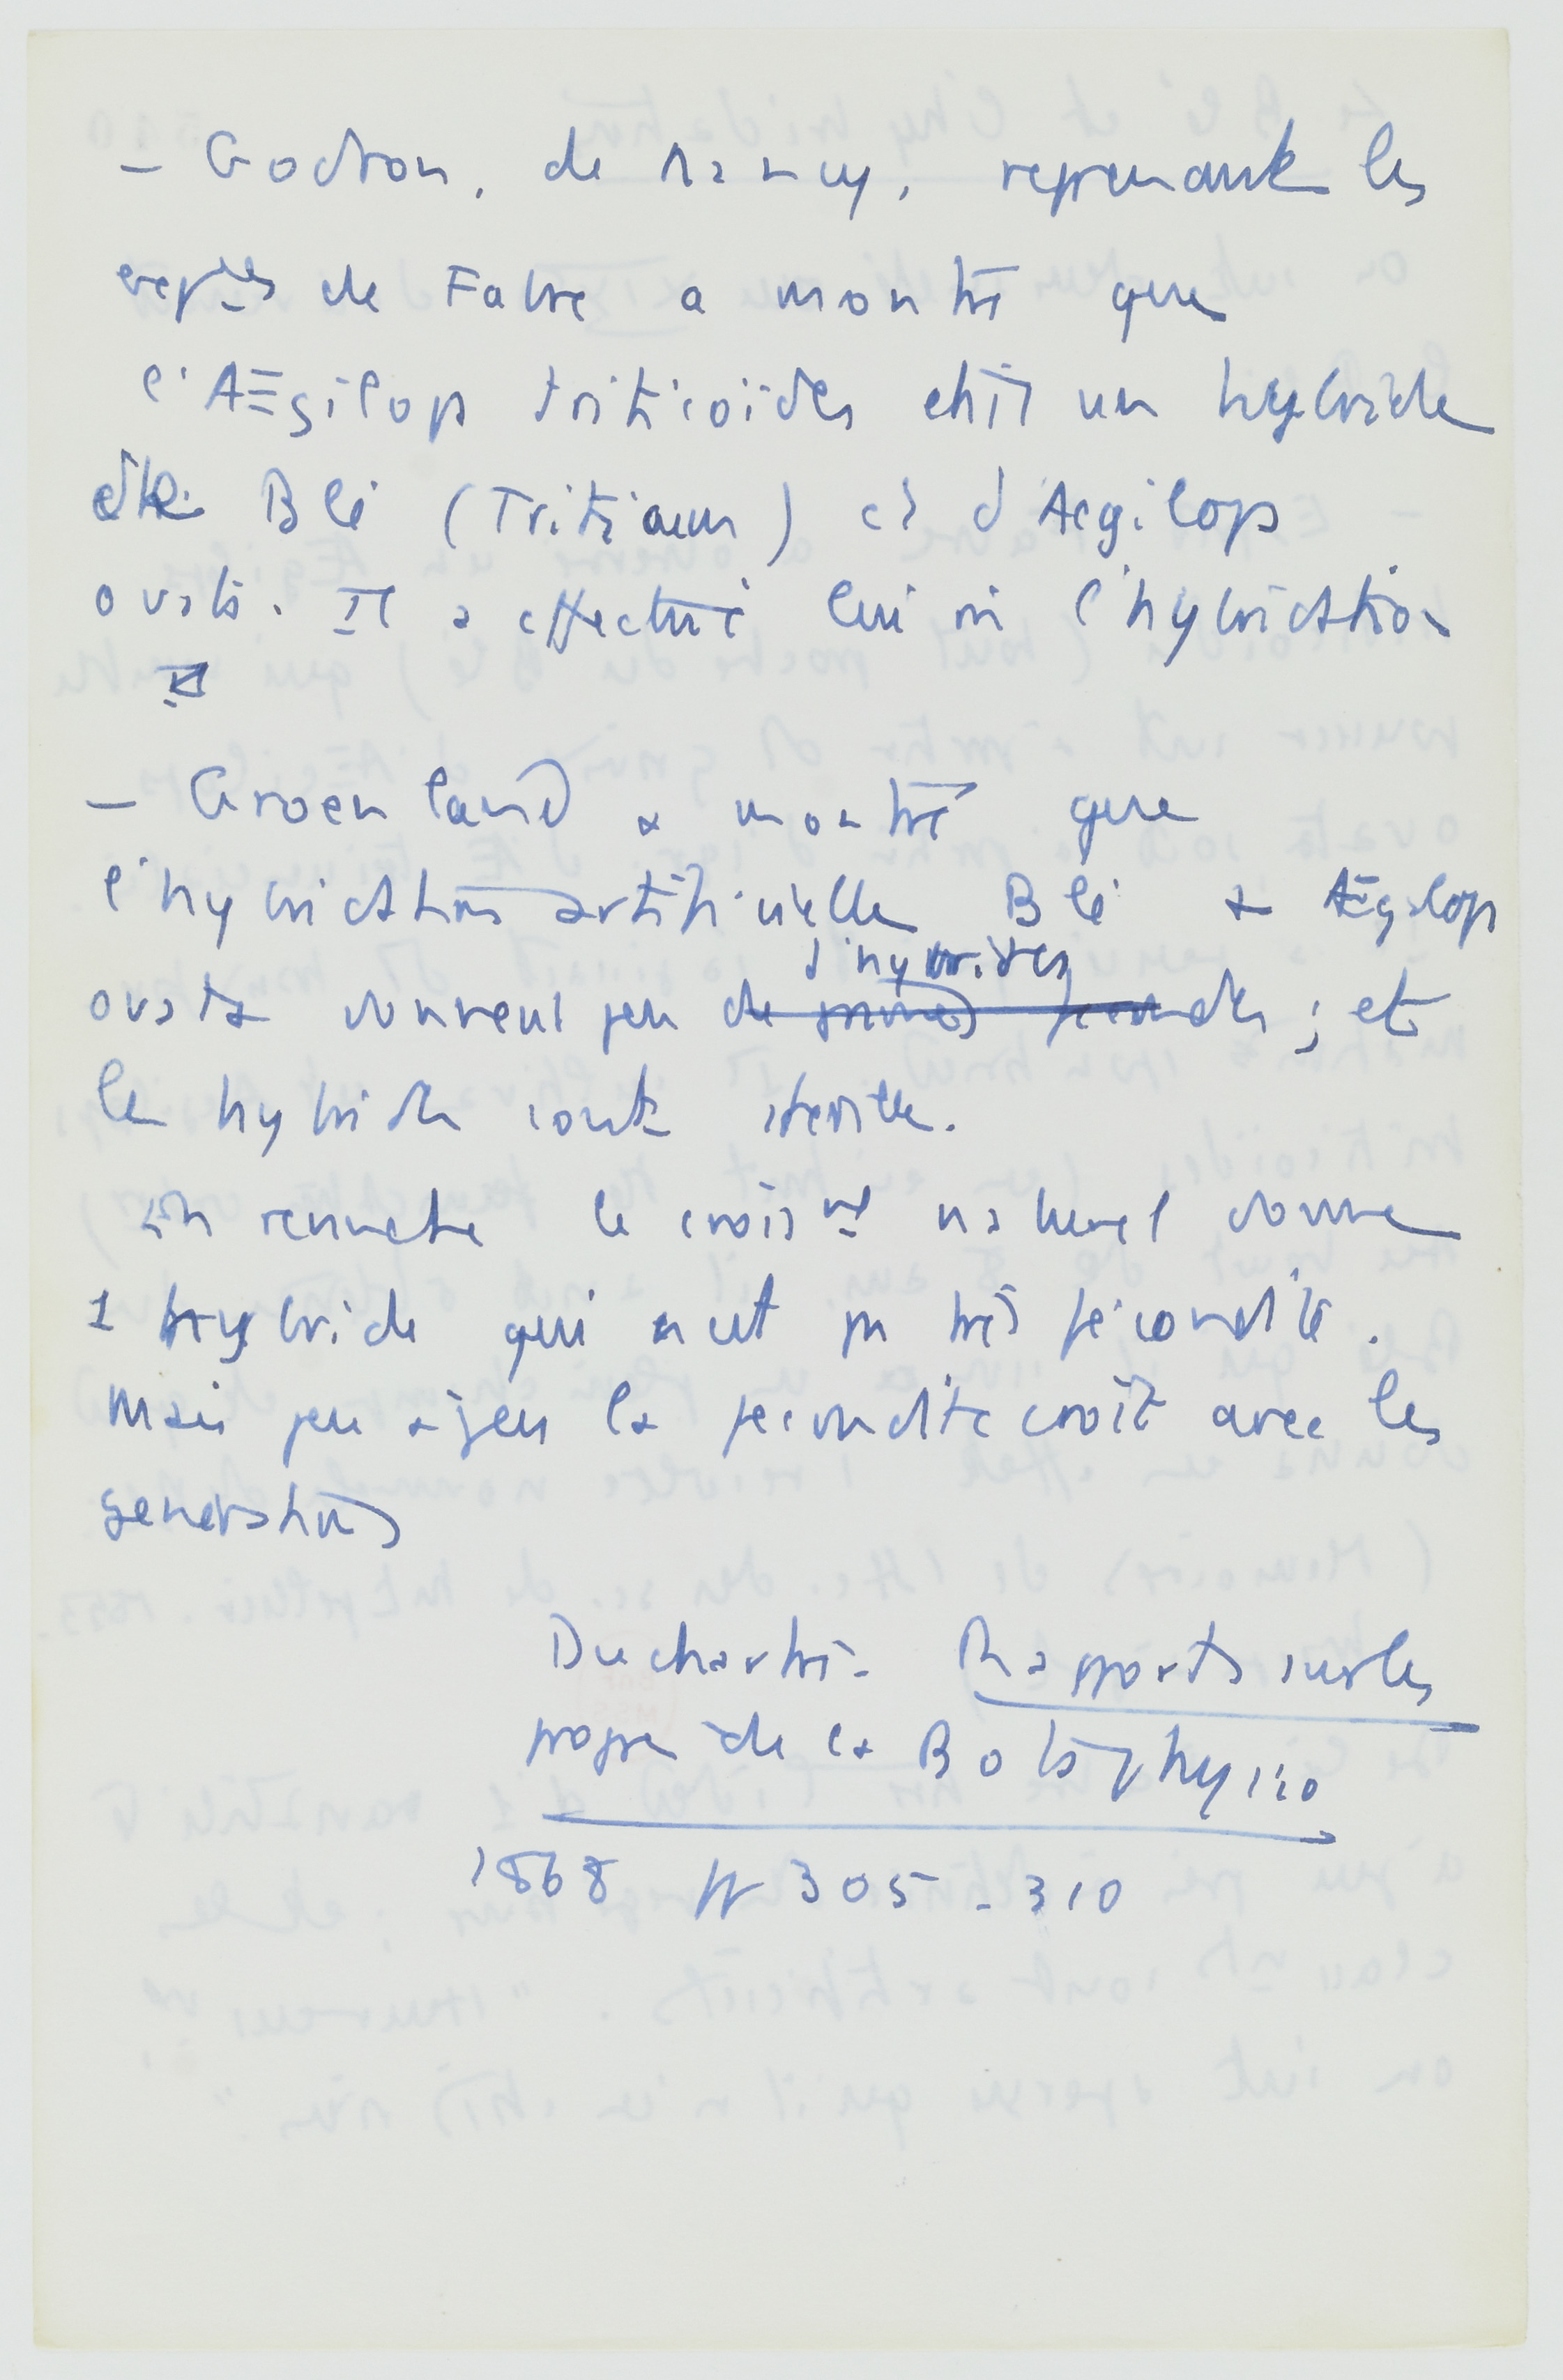 – Godron, de Nancy, reprenant les
exp^ces de Fabre a montré que
l'AEgilops triticoïdes était un hybride
de Blé (Triticum) et d'Aegilops
ovata. Il a effectué lui m l'hybridation
– Groenland a montré que
l'hybridation artificielle Blé + AEgilops
d'hybrides
ovata donnent peu de graines fécondes ; et
les hybrides sont stériles.
En revanche le crois^mt naturel donne
1 hybride qui n'est pas très fécondité.
Mais peu à peu la fécondité croît avec les
générations
Duchartre. Rapports sur les
progrès de la Bota physio
1868 pp 305-310